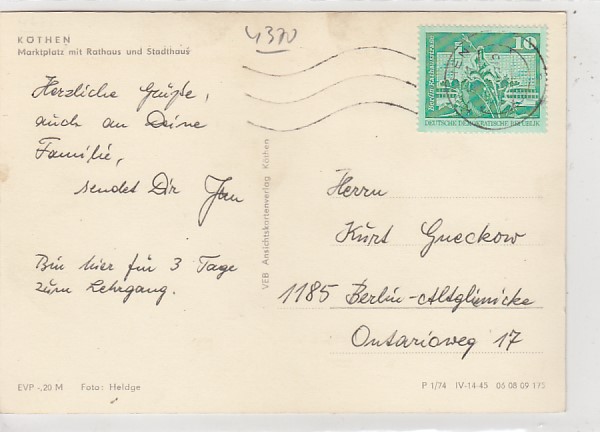 KÖTHEN
Marktplatz mit Rathaus und Stadthaus
4370
Herzliche Grüße,
auch an Deine
Familie,
sendet Dir Jan
Bin hier für 3 Tage
zum Lehrgang.
EVP -,20 M Foto: Heldge
VEB Ansichtskartenverlag Köthen
10
Berlin, Rathausstraße
DEUTSCHE DEMOKRATISCHE REPUBLIK
Herrn
Kurt Gneckow
1185 Berlin-Altglinicke
Ontarioweg 17
P 1/74 IV-14-45 06 08 09 175